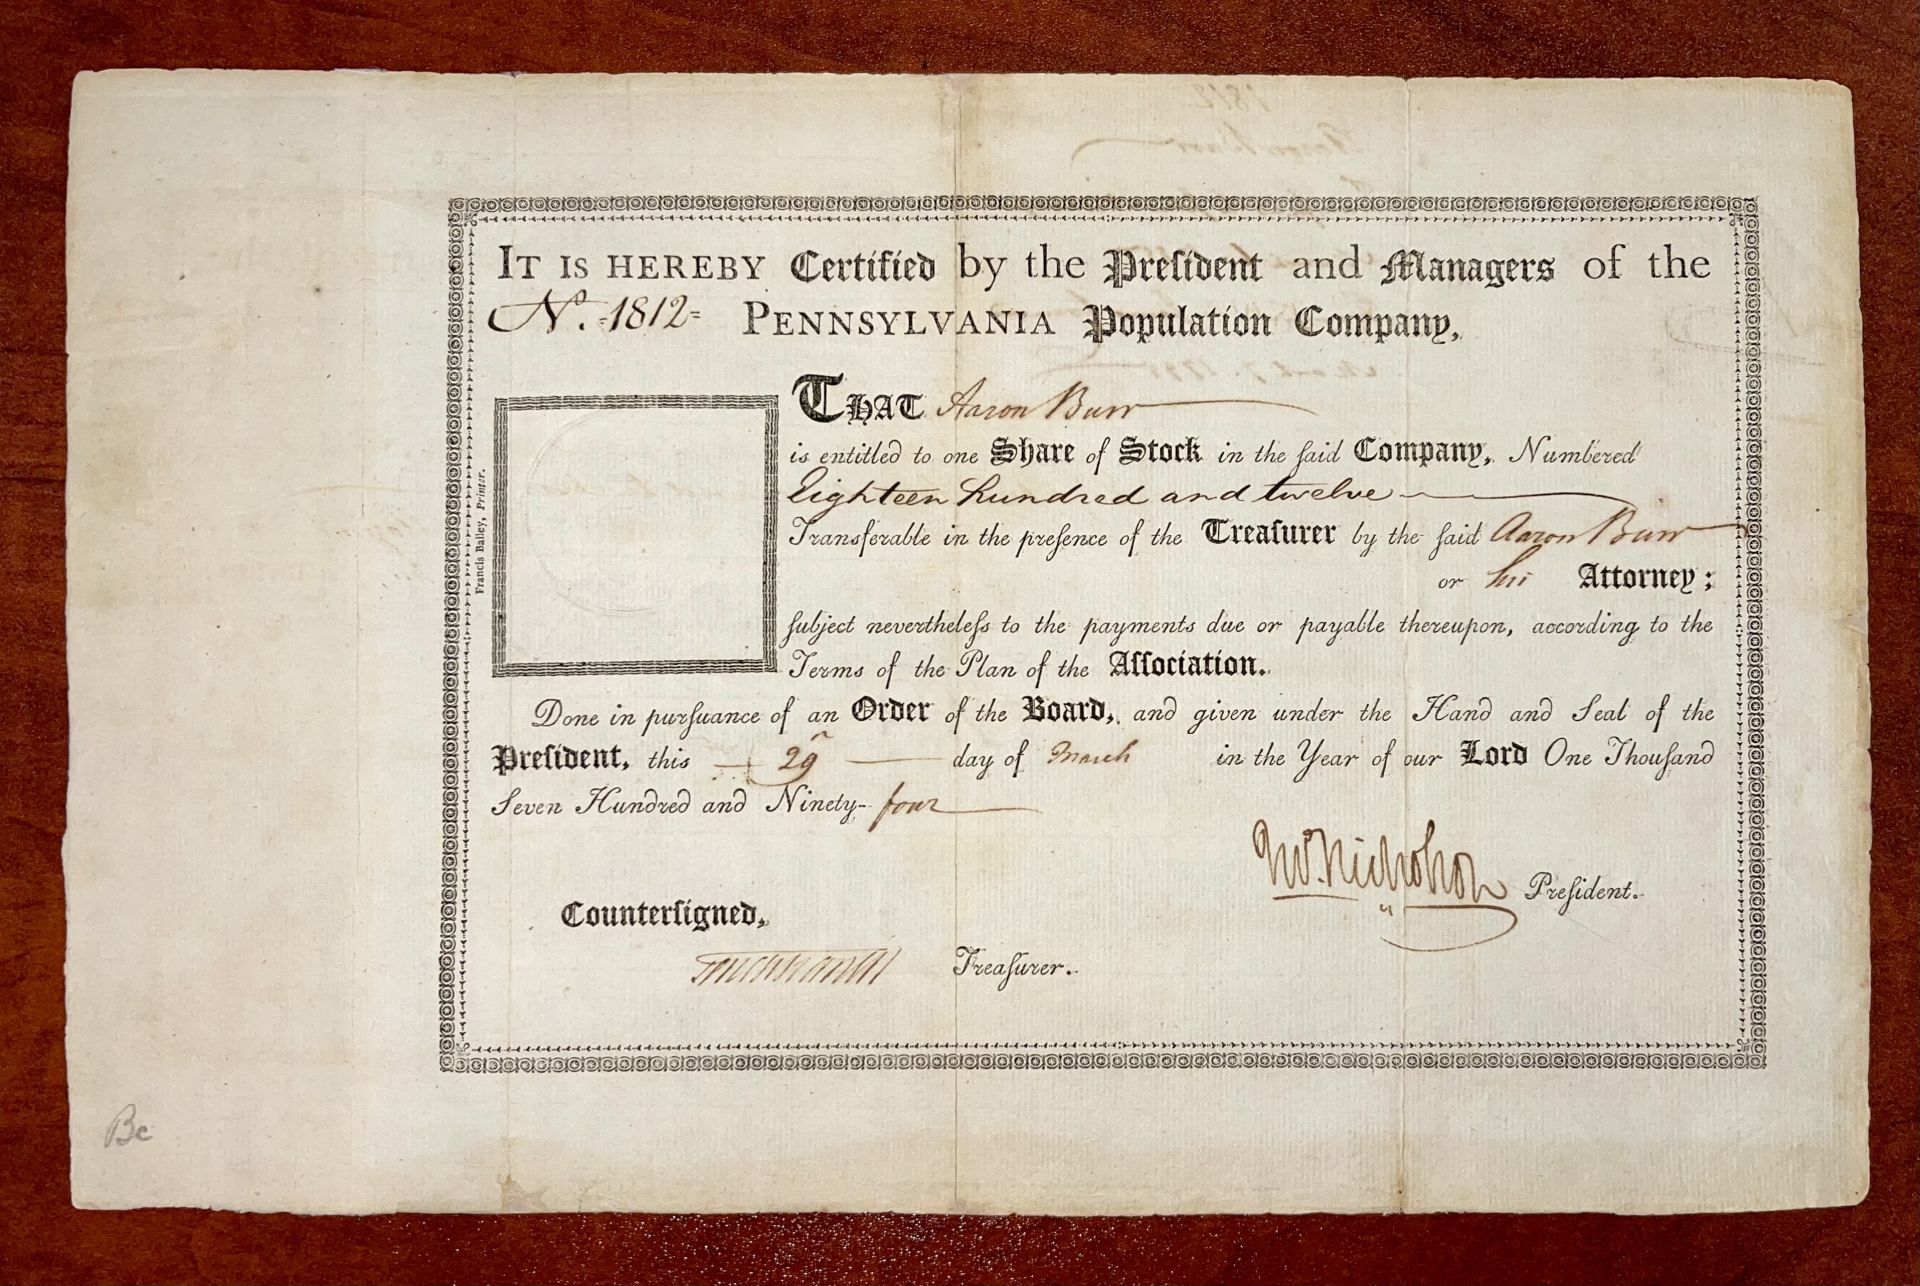 IT IS HEREBY Certified by the President and Managers of the
No. 1812 PENNSYLVANIA Population Company,
THAT Aaron Burr
is entitled to one Share of Stock in the said Company, Numbered
Eighteen hundred and twelve
Transferable in the presence of the Treasurer by the said Aaron Burr
or his Attorney;
subject nevertheless to the payments due or payable thereupon, according to the
Terms of the Plan of the Association.
Done in pursuance of an Order of the Board, and given under the Hand and Seal of the
President, this 29 day of March in the Year of our Lord One Thousand
Seven Hundred and Ninety-four
Jno. Nicholson President.
Countersigned,
Treasurer.
Francis Bailey, Printer.
Bc